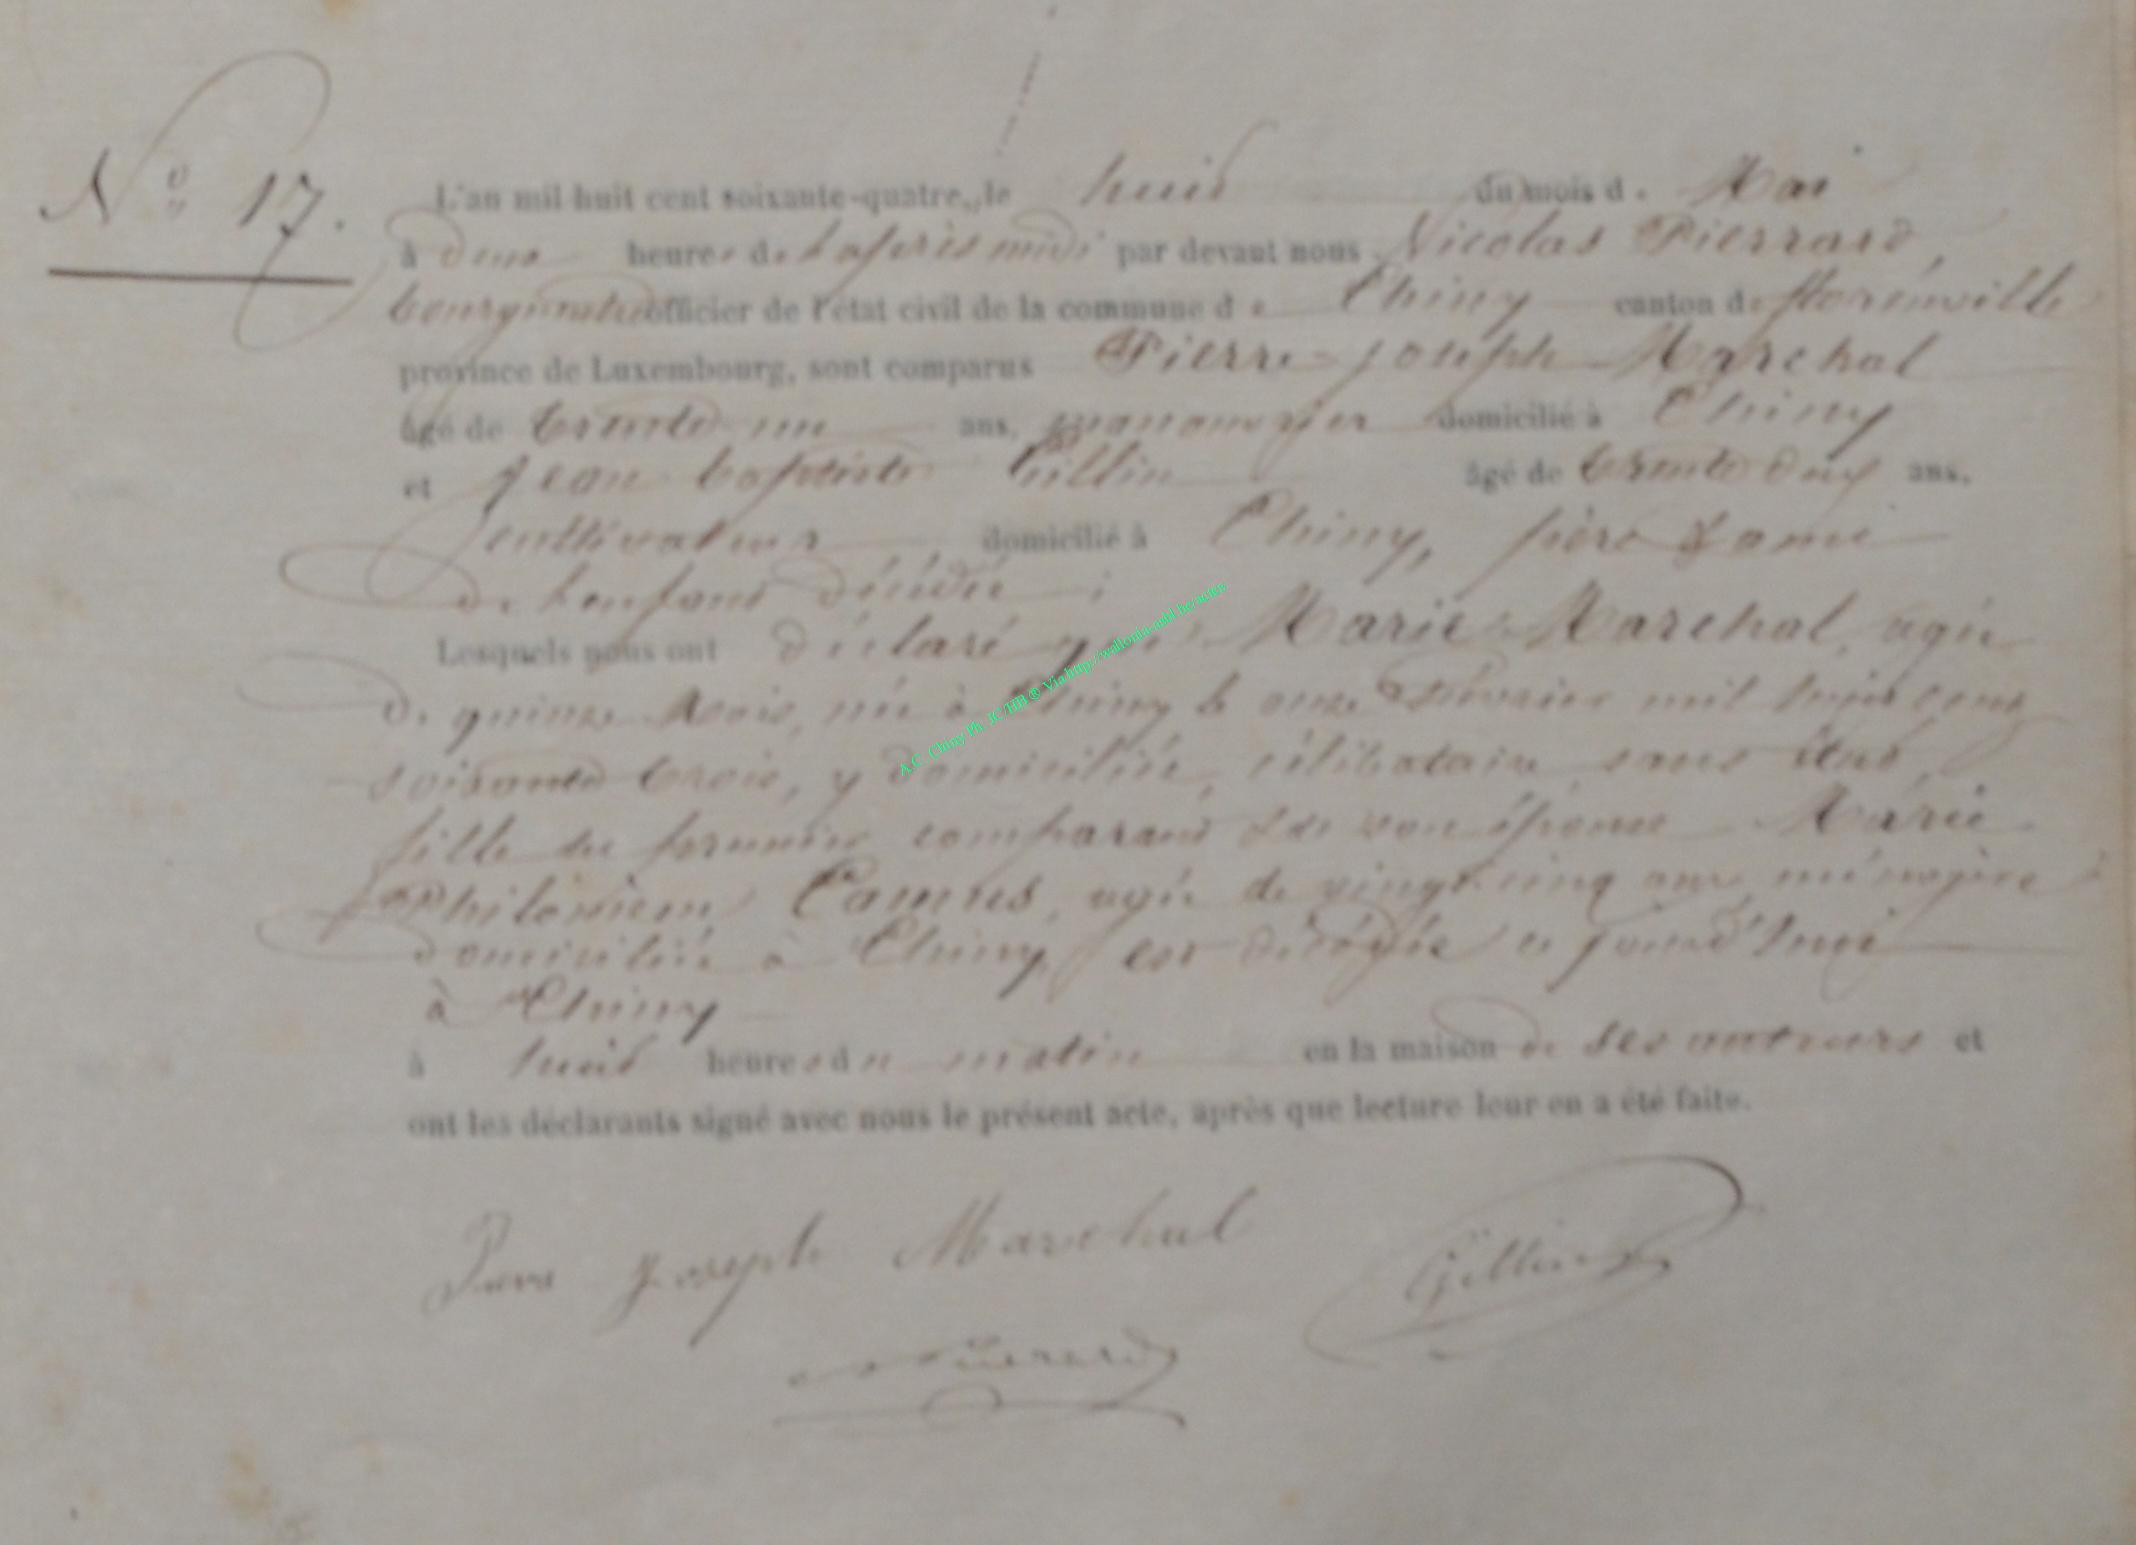 N° 17.
L'an mil huit cent soixante-quatre, le huit du mois de Mai
à deux heures de l'après midi par devant nous Nicolas Pierrard,
bourgmestre officier de l'état civil de la commune de Chiny canton de florenville
province de Luxembourg, sont comparus Pierre-Joseph Marchal
âgé de trente un ans, manouvrier domicilié à Chiny
et Jean Baptiste Gillin âgé de trente deux ans,
cultivateur domicilié à Chiny, père & ami
de l'enfant décédée ;
Lesquels nous ont déclaré que Marie Marchal, agée
de quinze Mois, née à Chiny le onze Février mil huit cent
soixante trois, y domiciliée, célibataire, sans état,
fille du premier comparant & de son épouse Marie
Camus, agée de vingt-cinq ans, ménagère
domiciliée à Chiny, est décédée ce jourd'hui
à Chiny
à huit heures du matin en la maison de ses auteurs et
ont les déclarants signé avec nous le présent acte, après que lecture leur en a été faite.
Pierre Joseph Marchal
Gillin
NPierrard
A.C. Chiny Ph. JC HB ® Via http://wallonia-asbl.be/actes